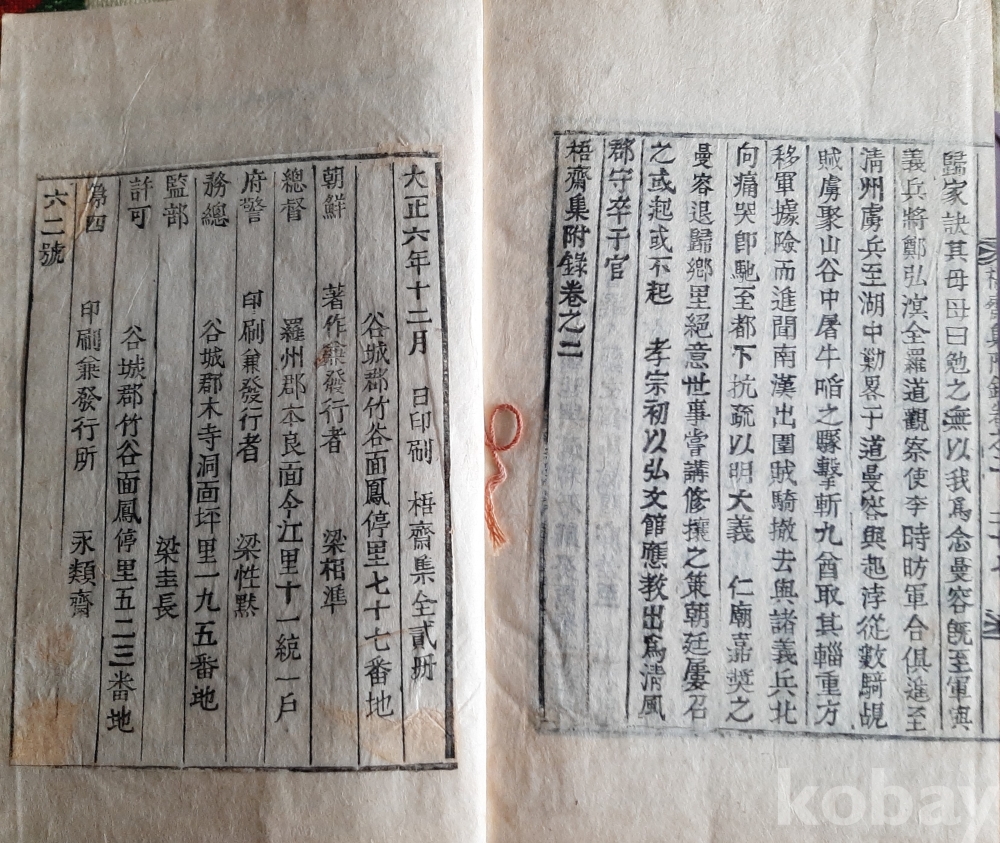 歸家訣其母母曰勉之無以我爲念曼容旣至軍與
義兵將鄭弘溟全羅道觀察使李時昉軍合俱進至
淸州虜兵至湖中勦畧于道曼容與起浡從數騎覘
賊虜聚山谷中屠牛啗之驟擊斬九酋取其輜重方
移軍據險而進聞南漢出圍賊騎撤去與諸義兵北
向痛哭卽馳至都下抗疏以明大義 仁廟嘉奬之
曼容退歸鄕里絕意世事嘗講修攘之策朝廷屢召
之或起或不起 孝宗初以弘文館應教出爲淸風
郡守卒于官
梧齋集附錄卷之二
大正六年十二月 日印刷 梧齋集全貳冊
谷城郡竹谷面鳳停里七十七番地
朝鮮 著作兼發行者 梁相準
總督 羅州郡本良面今江里十一統一戶
府警 印刷兼發行者 梁性默
務總 谷城郡木寺洞面坪里一九五番地
監部 梁圭長
許可 谷城郡竹谷面鳳停里五二三番地
第四 印刷兼發行所 永類齋
六二號
kobay